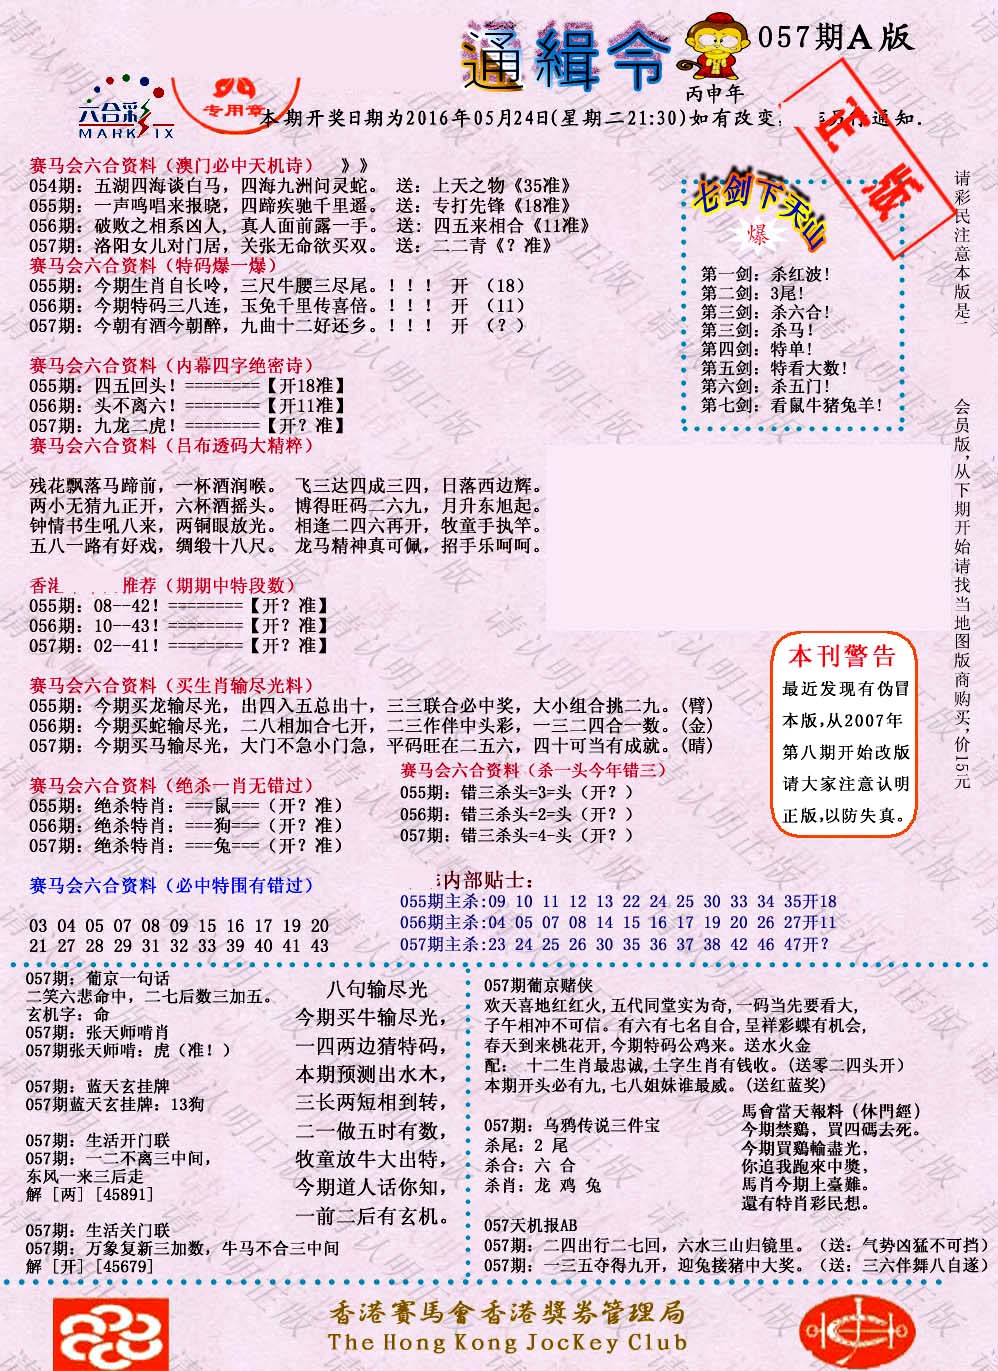 通緝令
057期A版
丙申年
六合彩
MARK SIX
专用章
正版
本期开奖日期为2016年05月24日(星期二21:30)如有改变,
通知.
赛马会六合资料（澳门必中天机诗） 》》
054期：五湖四海谈白马，四海九洲问灵蛇。 送：上天之物《35准》
055期：一声鸣唱来报晓，四蹄疾驰千里遥。 送：专打先锋《18准》
056期：破败之相系凶人, 真人面前露一手。 送: 四五来相合《11准》
057期：洛阳女儿对门居，关张无命欲买双。 送：二二青《？准》
赛马会六合资料（特码爆一爆）
055期：今期生肖自长呤，三尺牛腰三尽尾。！！！ 开 （18）
056期：今期特码三八连，玉兔千里传喜倍。！！！ 开 （11）
057期：今朝有酒今朝醉，九曲十二好还乡。！！！ 开 （？）
赛马会六合资料（内幕四字绝密诗）
055期：四五回头！========【开18准】
056期：头不离六！========【开11准】
057期：九龙二虎！========【开？准】
赛马会六合资料（吕布透码大精粹）
残花飘落马蹄前，一杯酒润喉。 飞三达四成三四，日落西边辉。
两小无猜九正开，六杯酒摇头。 博得旺码二六九，月升东旭起。
钟情书生吼八来，两铜眼放光。 相逢二四六再开，牧童手执竿。
五八一路有好戏，绸缎十八尺。 龙马精神真可佩，招手乐呵呵。
七剑下天山
爆
第一剑：杀红波！
第二剑：3尾!
第三剑：杀六合！
第三剑：杀马！
第四剑：特单！
第五剑：特看大数！
第六剑：杀五门！
第七剑：看鼠牛猪兔羊！
请彩民注意本版是
会员版，从下期开始请找当地图版商购买，价15元
香港
推荐（期期中特段数）
055期：08--42！========【开？准】
056期：10--43！========【开？准】
057期：02--41！========【开？准】
赛马会六合资料（买生肖输尽光料）
055期：今期买龙输尽光，出四入五总出十，三三联合必中奖，大小组合挑二九。(臂)
056期：今期买蛇输尽光，二八相加合七开，二三作伴中头彩，一三二四合一数。(金)
057期：今期买马输尽光，大门不急小门急，平码旺在二五六，四十可当有成就。(晴)
本刊警告
最近发现有伪冒
本版,从2007年
第八期开始改版
请大家注意认明
正版,以防失真。
赛马会六合资料（绝杀一肖无错过）
055期：绝杀特肖：===鼠===（开？准）
056期：绝杀特肖：===狗===（开？准）
057期：绝杀特肖：===兔===（开？准）
赛马会六合资料（杀一头今年错三）
055期：错三杀头=3=头（开？）
056期：错三杀头=2=头（开？）
057期：错三杀头=4-头（开？）
赛马会六合资料（必中特围有错过）
03 04 05 07 08 09 15 16 17 19 20
21 27 28 29 31 32 33 39 40 41 43
内部贴士：
055期主杀:09 10 11 12 13 22 24 25 30 33 34 35开18
056期主杀:04 05 07 08 14 15 16 17 19 20 26 27开11
057期主杀:23 24 25 26 30 35 36 37 38 42 46 47开？
057期：葡京一句话
二笑六悲命中，二七后数三加五。
玄机字：命
057期：张天师啃肖
057期张天师啃：虎（准！）
057期：蓝天玄挂牌
057期蓝天玄挂牌：13狗
057期：生活开门联
057期：一二不离三中间，
东风一来三后走
解［两］[45891]
057期：生活关门联
057期：万象复新三加数，牛马不合三中间
解［开］[45679]
八句输尽光
今期买牛输尽光，
一四两边猜特码，
本期预测出水木，
三长两短相到转，
二一做五时有数，
牧童放牛大出特，
今期道人话你知，
一前二后有玄机。
057期葡京赌侠
欢天喜地红红火,五代同堂实为奇,一码当先要看大,
子午相冲不可信。有六有七名自合,呈祥彩蝶有机会,
春天到来桃花开,今期特码公鸡来。送水火金
配： 十二生肖最忠诚,土字生肖有钱收。(送零二四头开）
本期开头必有九,七八姐妹谁最威。(送红蓝奖)
057期：乌鸦传说三件宝
杀尾：2 尾
杀合：六 合
杀肖：龙 鸡 兔
馬會當天報料（休門經）
今期禁鷄，買四碼去死。
今期買鷄輸盡光，
你追我跑來中獎，
馬肖今期上臺難。
還有特肖彩民想。
057天机报AB
057期：二四出行二七回，六水三山归镜里。（送：气势凶猛不可挡）
057期：一三五夺得九开，迎兔接猪中大奖。（送：三六伴舞八自遂）
香港賽馬會香港獎券管理局
The Hong Kong JocKey Club